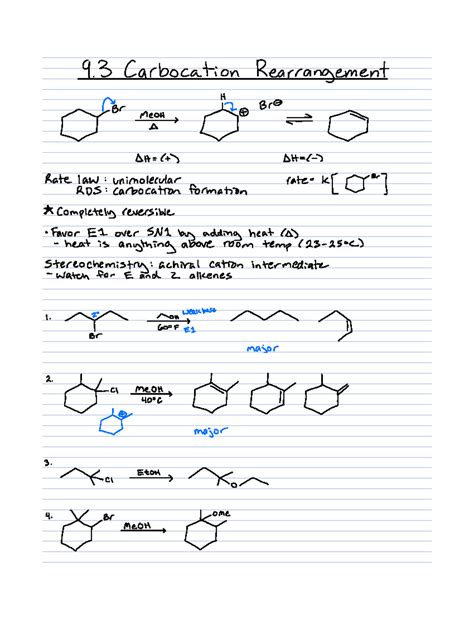 9.3 Carbocation Rearrangement
Br MeOH Δ H ⊕ Br⊖
ΔH = (+) ΔH = (-)
Rate law : unimolecular rate = k [ Br ]
RDS : carbocation formation
★ Completely reversible
• Favor E1 over SN1 by adding heat (Δ)
- heat is anything above room temp (23-25°C)
Stereochemistry : achiral cation intermediate
- watch for E and Z alkenes
1. 2° Br OH weak base 60°F E1
major
2. Cl MeOH 40°C
⊕ major
3. Cl EtOH O
4. Br MeOH OMe